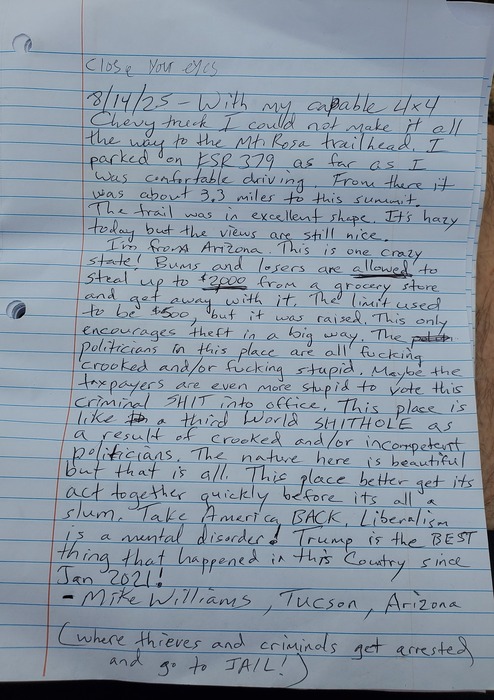 Close your eyes
8/14/25 - With my capable 4x4
Chevy truck I could not make it all
the way to the Mt. Rosa trailhead. I
parked on FSR 379 as far as I
was confortable driving. From there it
was about 3.3 miles to this summit.
The trail was in excellent shape. It's hazy
today but the views are still nice.
I'm from Arizona. This is one crazy
state! Bums and losers are allowed to
steal up to $2000 from a grocery store
and get away with it. The limit used
to be $500, but it was raised. This only
encourages theft in a big way. The
politicians in this place are all fucking
crooked and/or fucking stupid. Maybe the
taxpayers are even more stupid to vote this
criminal SHIT into office. This place is
like a third world SHITHOLE as
a result of crooked and/or incompetent
politicians. The nature here is beautiful
but that is all. This place better get its
act together quickly before its all a
slum. Take America BACK. Liberalism
is a mental disorder! Trump is the BEST
thing that happened in this Country since
Jan 2021!
- Mike Williams, Tucson, Arizona
(where thieves and criminals get arrested
and go to JAIL!)